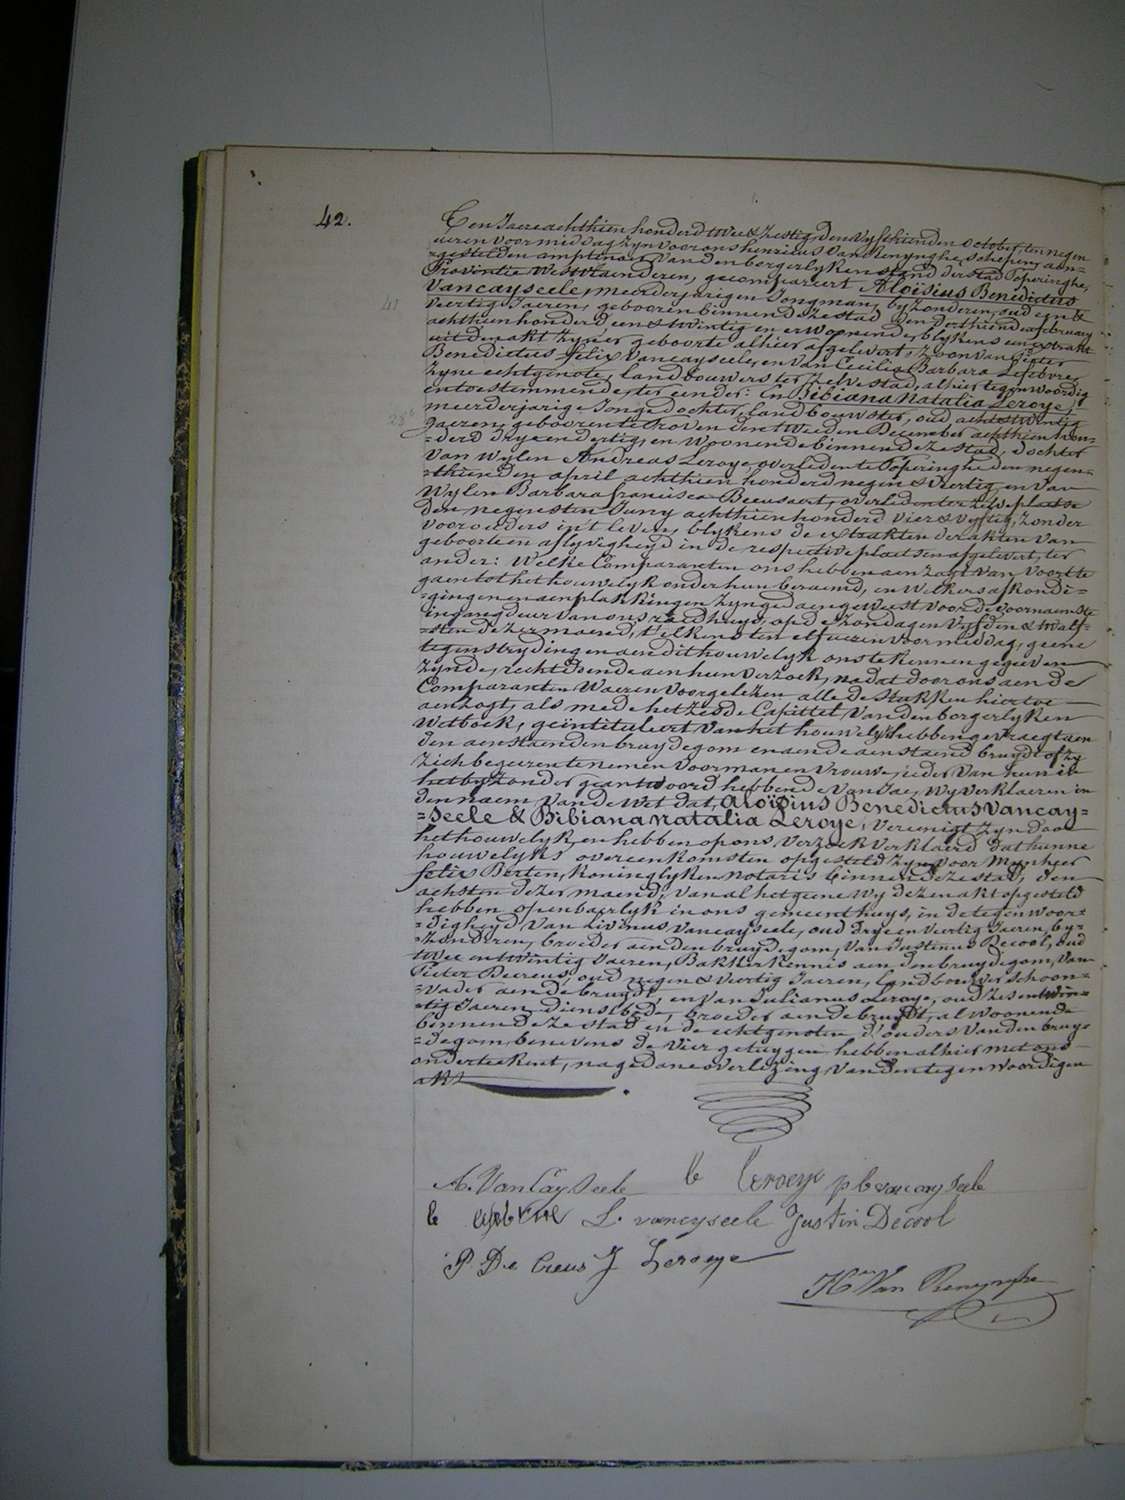 42.
Ten Jaere achthien honderd twee & zestig, den vyfthienden october, ten negen
ueren voormiddag zyn voor ons henricus Van Renynghe, schepen, aen-
=gestelden amptenaer van den borgerlyken stand der stad Poperinghe,
Provintie Westvlaenderen, gecompareert Aloïsius Benedictus
Vancayseele, meerderjarigen Jongman, byzonderen, oud een &
41
veertig Jaeren, geboren binnen deze stad den derthienden february
achthien honderd een & twintig en er woonende, blykens een extrakt
uit de akt zyner geboorte alhier afgelevert, zoon van Pieter
Benedictus felix Vancayseele, en van Cecilia Barbara Lefebvre
zyne echtgenote, landbouwers ter zelve stad, alhier tegenwoordig
en toestemmende, ter eender: En Bibiana Natalia Leroye,
meerderjarige Jonge dochter, landbouwster, oud acht & twintig
28
Jaeren, geboren te Proven den tweeden December achthien hon-
=derd dry en dertig, en woonende binnen deze stad, dochter
van wylen Andreas Leroye, overleden te Poperinghe den negen-
=thienden april achthien honderd negen & veertig, en van
Wylen Barbara francisca Beeusaert, overleden ter zelve plaetse
den negensten Juny achthien honderd vier & vyftig, zonder
voorouders in t leven, blykens de extrakten der akten van
geboorte en aflyvigheyd in de respective plaetsen afgelevert, ter
ander: Welke Comparanten ons hebben aenzogt van voort te
gaen tot het houwelyk onder hun beraemd, en welkers afkondi-
=gingen en aenplakkingen zyn gedaen geweest voor de voornaemste
ingangdeur van ons raedhuys, op de zondagen vyfden & twalf-
=sten dezer maend, t'elkens ten elf ueren voormiddag, geene
tegenstrydingen aen dit houwelyk ons te kennen gegeeven
zynde, rechtdoende aen hun verzoek, nadat door ons aen de
Comparanten waeren voorgelezen alle de stukken hiertoe
aenzogt, als mede het zesde Capittel van den borgerlyken
Wetboek, geïntituleert van het houwelyk, hebben gevraegt aen
den aenstaenden bruydegom en aen de aenstaende bruydt of zy
zich begeeren te nemen voor man en vrouwe, ieder van hun in
het byzonder geantwoord hebbende van Jae, Wy verklaeren in
den naem van de wet dat, Aloïsius Benedictus Vancay=
=seele & Bibiana natalia Leroye, vereenigt zyn door
het houwelyk, en hebben op ons verzoek verklaerd dat hunne
houwelyks overeenkomsten opgesteld zyn voor Mynheer
felix Berten, koninglyken notaris binnen deze stad, den
achsten dezer maend; van al het geene wy dezen akt opgesteld
hebben openbaerlyk in ons gemeenthuys, in de tegenwoor-
=digheyd van Livinus Vancayseele, oud dry en veertig Jaeren, by-
=zonderen, broeder aen den bruydegom, van Justinus Decool, oud
twee en twintig Jaeren, Bakker kennis aen den bruydegom, van
Pieter Decreus, oud negen & veertig Jaeren, landbouwer schoon-
=vader aen de bruydt, en van Julianus Leroye, oud zes en twin-
=tig Jaeren, dienstbode, broeder aen de bruydt, al woonende
binnen deze stad en de echtgenoten, d'ouders van den bruy-
=degom, benevens de vier getuygen hebben alhier met ons
onderteekent, na gedane overlezing van den tegenwoordigen
akt.
A. VanCayseele b Leroeye p b vancayseele
L. vancyseele Justin Decool
P. De Creus J Leroeye
Hri Van Renynghe